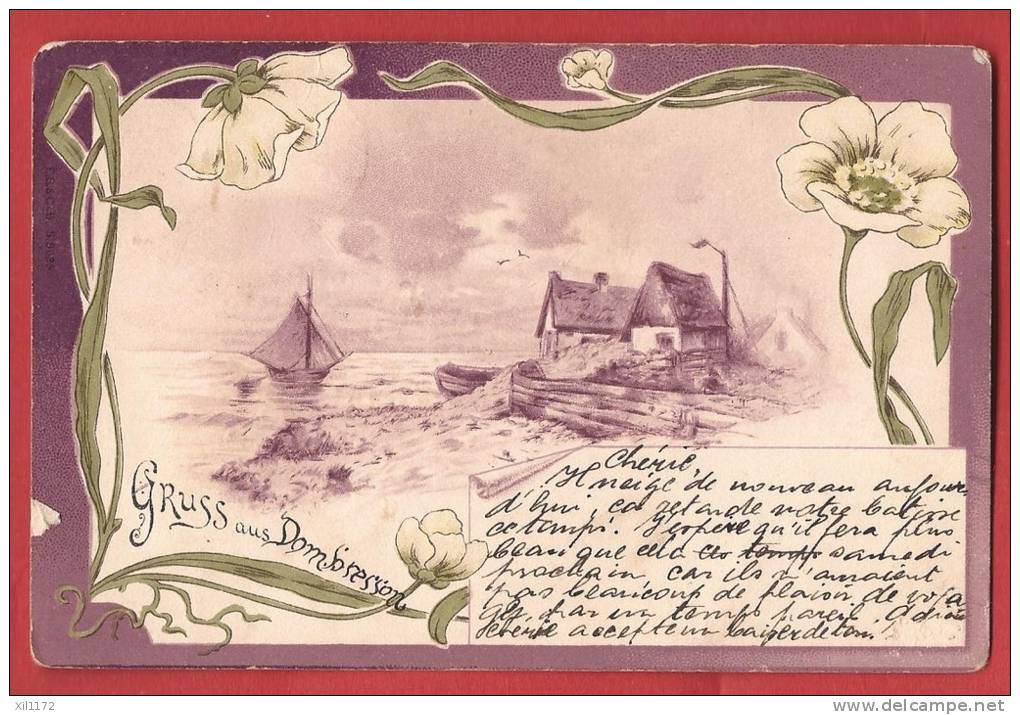 E.B.&C.i.B. S.8024
Gruss aus Dombresson
Chérie
Il neige de nouveau aujour-
d'hui, ca retarde notre batisse
ce temps. J'espère qu'il fera plus
beau que cela ce temps samedi
prochain, car ils n'auraient
pas beaucoup de plaisir de voya
ger par un temps pareil. Adieu
chérie accepte un baiser de ton.
xil1172
delcampe.net